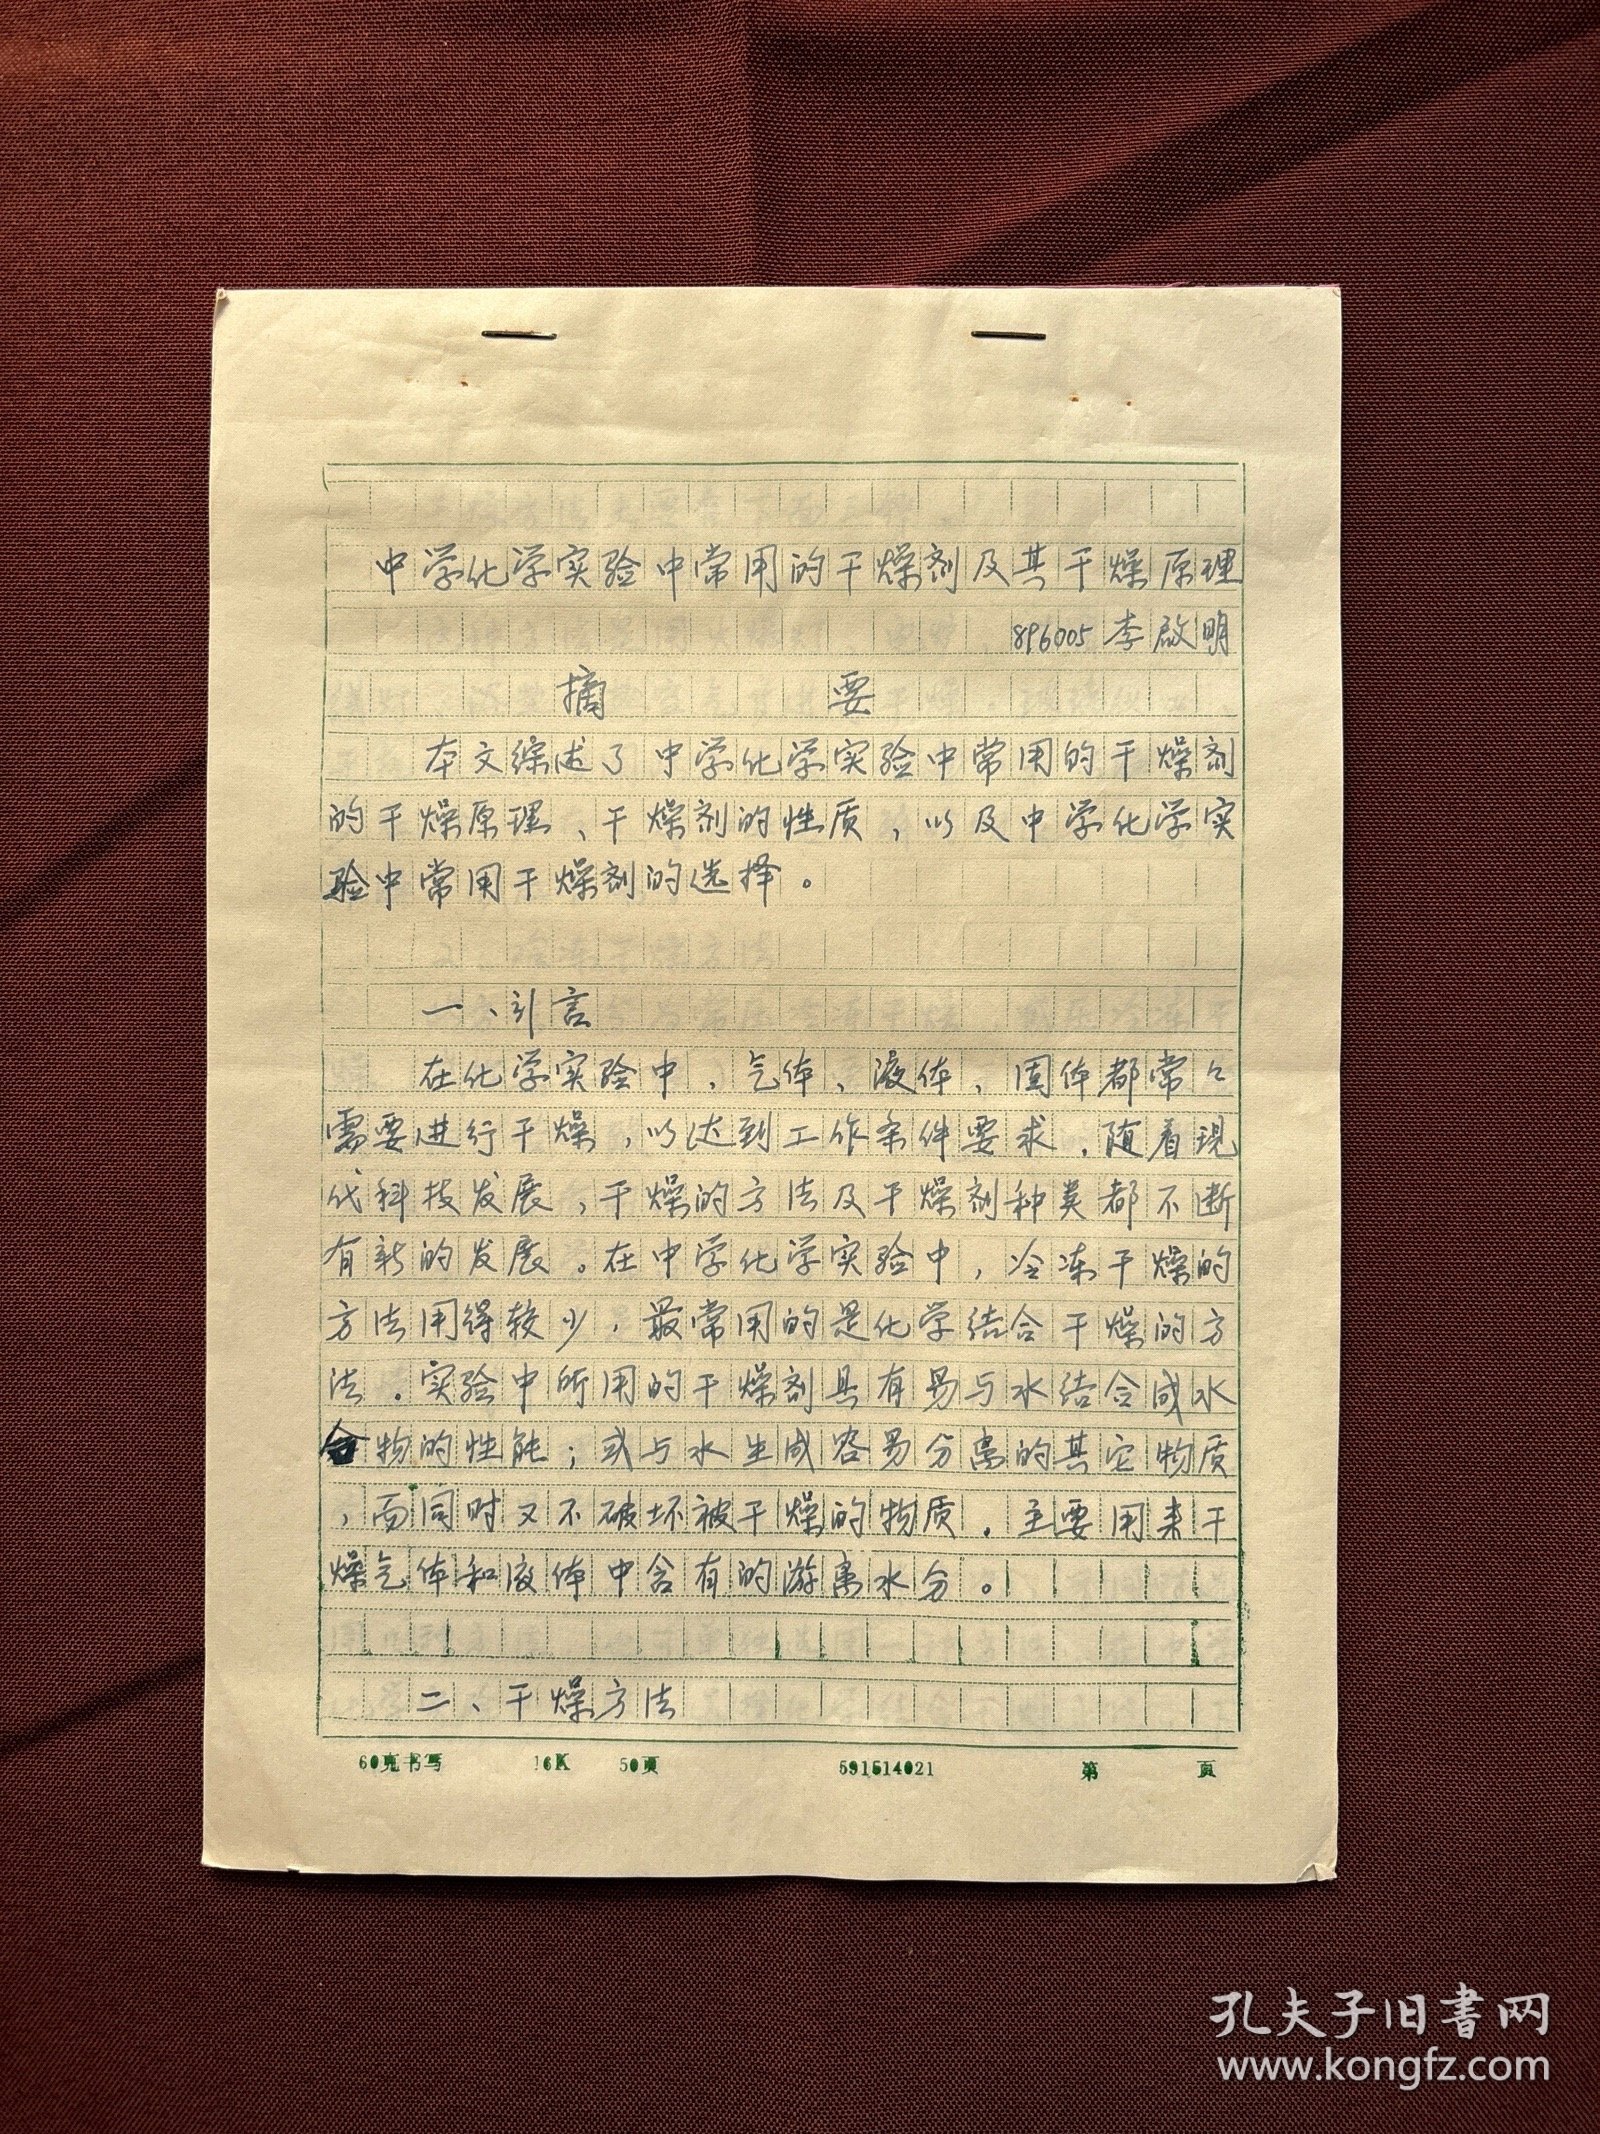 中学化学实验中常用的干燥剂及其干燥原理
896005李啟明
摘 要
本文综述了中学化学实验中常用的干燥剂
的干燥原理、干燥剂的性质，以及中学化学实
验中常用干燥剂的选择。
一、引言
在化学实验中，气体、液体、固体都常々
需要进行干燥，以达到工作条件要求．随着现
代科技发展，干燥的方法及干燥剂种类都不断
有新的发展。在中学化学实验中，冷冻干燥的
方法用得较少．最常用的是化学结合干燥的方
法．实验中所用的干燥剂具有易与水结合成水
合物的性能；或与水生成容易分离的其它物质
，而同时又不破坏被干燥的物质．主要用来干
燥气体和液体中含有的游离水分。
二、干燥方法
60克书写 16K 50页 591514021 第 页
孔夫子旧书网
www.kongfz.com